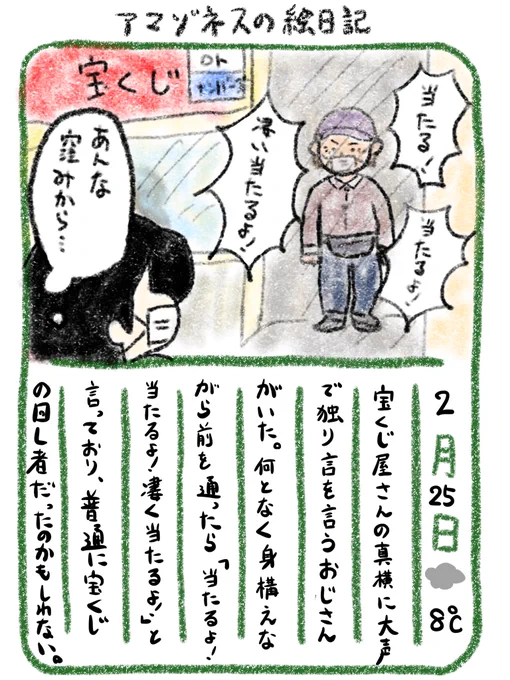 アマゾネスの絵日記
宝くじ
ロト
ナンバーズ
当たる！
当たるよ！
凄い当たるよ！
あんな
窪みから…
2月25日
8℃
宝くじ屋さんの真横に大声
で独り言を言うおじさん
がいた。何となく身構えな
がら前を通ったら「当たるよ！
当たるよ！凄く当たるよ！」と
言っており、普通に宝くじ
の回し者だったのかもしれない。